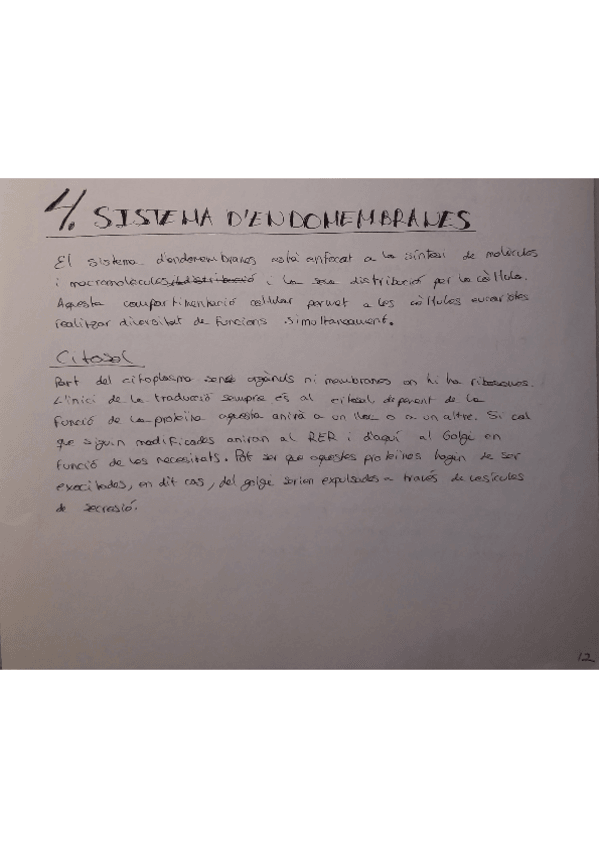 4. SISTEMA D'ENDOMEMBRANES
El sistema d'endomembranes està enfocat a la síntesi de molècules
i macromolècules i distribució i la seva distribució per la cèl·lula.
Aquesta compartimentació cel·lular permet a les cèl·lules eucariotes
realitzar diversitat de funcions simultaneament.
Citosol
Part del citoplasma sense orgànuls ni membranes on hi ha ribosomes.
L'inici de la traducció sempre és al citosol depenent de la
funció de la proteïna aquesta anirà a un lloc o a un altre. Si cal
que siguin modificades aniran al RER i d'aquí al Golgi en
funció de les necesitats. Pot ser que aquestes proteïnes hagin de ser
exocitades, en dit cas, del golgi serien expulsades a través de vesícules
de secresió.
12